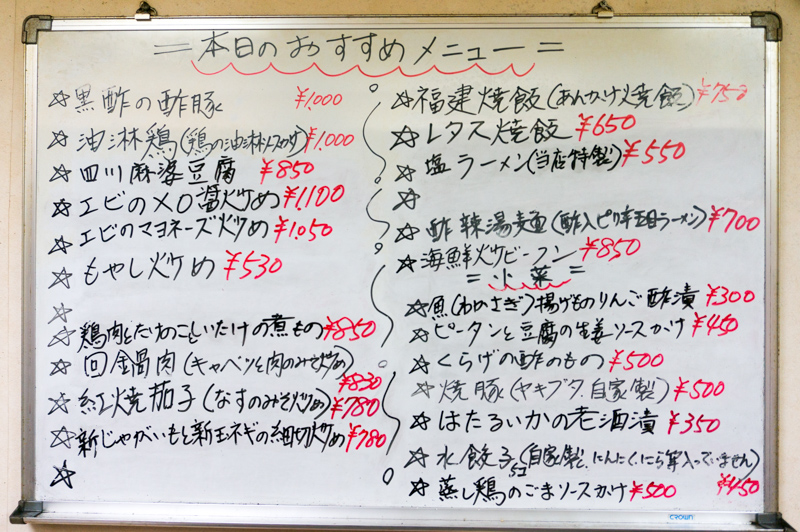 ＝本日のおすすめメニュー＝
☆黒酢の酢豚 ¥1,000
☆油淋鶏(鶏の油淋ソースかけ)¥1,000
☆四川麻婆豆腐 ¥850
☆エビのXO醤炒め¥1,100
☆エビのマヨネーズ炒め¥1,050
☆もやし炒め ¥530
☆
☆鶏肉とたけのこしいたけの煮もの¥850
☆回鍋肉(キャベツと肉のみそ炒め) ¥830
☆紅焼茄子(なすのみそ炒め)¥780
☆新じゃがいもと新玉ネギの細切炒め¥780
☆
☆福建焼飯(あんかけ焼飯)¥750
☆レタス焼飯 ¥650
☆塩ラーメン(当店特製)¥550
☆
☆酢辣湯麺(酢入ピリ辛五目ラーメン)¥700
☆海鮮炒ビーフン¥850
＝小菜＝
☆魚(わかさぎ)揚げものりんご酢漬 ¥300
☆ピータンと豆腐の生姜ソースかけ ¥450
☆くらげの酢のもの ¥500
☆焼豚(ヤキブタ.自家製)¥500
☆ほたるいかの老酒漬 ¥350
☆水餃子5コ(自家製、にんにく.にら等入っていません) ¥450
☆蒸し鶏のごまソースかけ¥500
CROWN